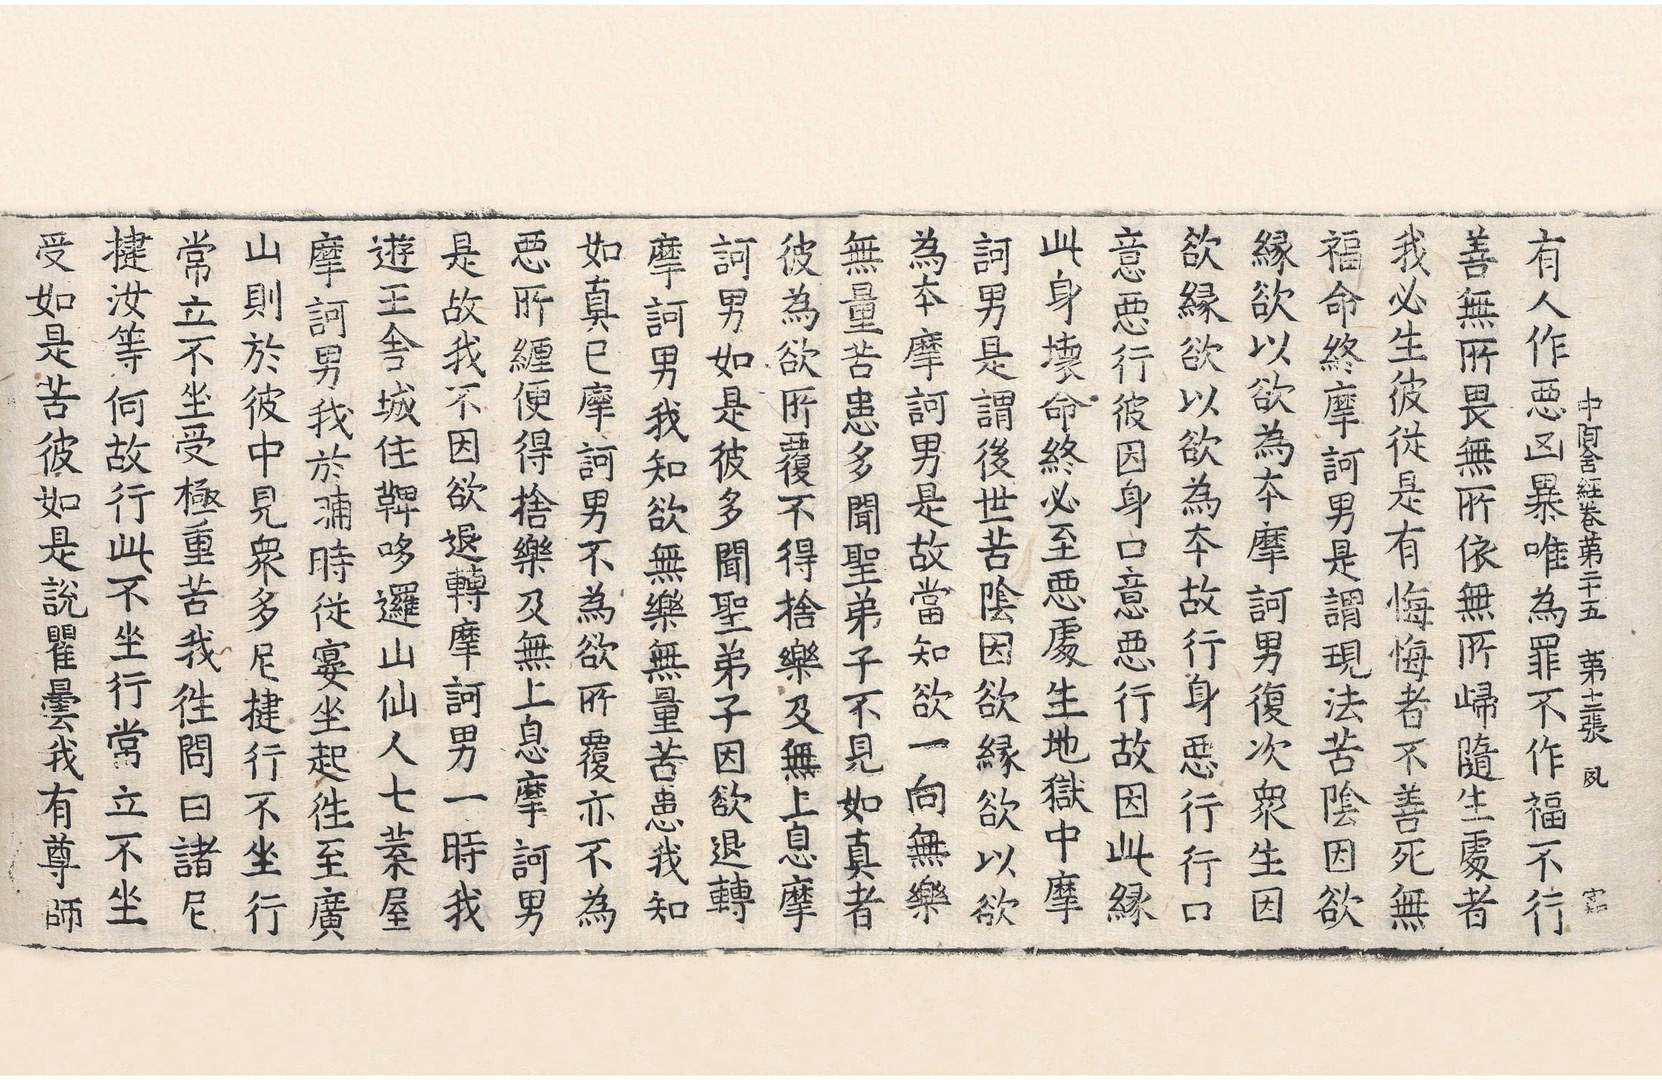 中阿含経巻第二十五 第十二張 夙
有人作悪凶暴唯為罪不作福不行
善無所畏無所依無所歸隨生處者
我必生彼從是有悔悔者不善死無
福命終摩訶男是謂現法苦陰因欲
縁欲以欲為本摩訶男復次衆生因
欲縁欲以欲為本故行身悪行行口
意悪行彼因身口意悪行故因此縁
此身壞命終必至悪處生地獄中摩
訶男是謂後世苦陰因欲縁欲以欲
為本摩訶男是故當知欲一向無樂
無量苦患多聞聖弟子不見如真者
彼為欲所覆不得捨樂及無上息摩
訶男如是彼多聞聖弟子因欲退轉
摩訶男我知欲無樂無量苦患我知
如真已摩訶男不為欲所覆亦不為
悪所纏便得捨樂及無上息摩訶男
是故我不因欲退轉摩訶男一時我
遊王舎城住鞞哆邏山仙人七葉屋
摩訶男我於晡時從宴坐起往至廣
山則於彼中見衆多尼揵行不坐行
常立不坐受極重苦我往問曰諸尼
揵汝等何故行此不坐行常立不坐
受如是苦彼如是說瞿曇我有尊師